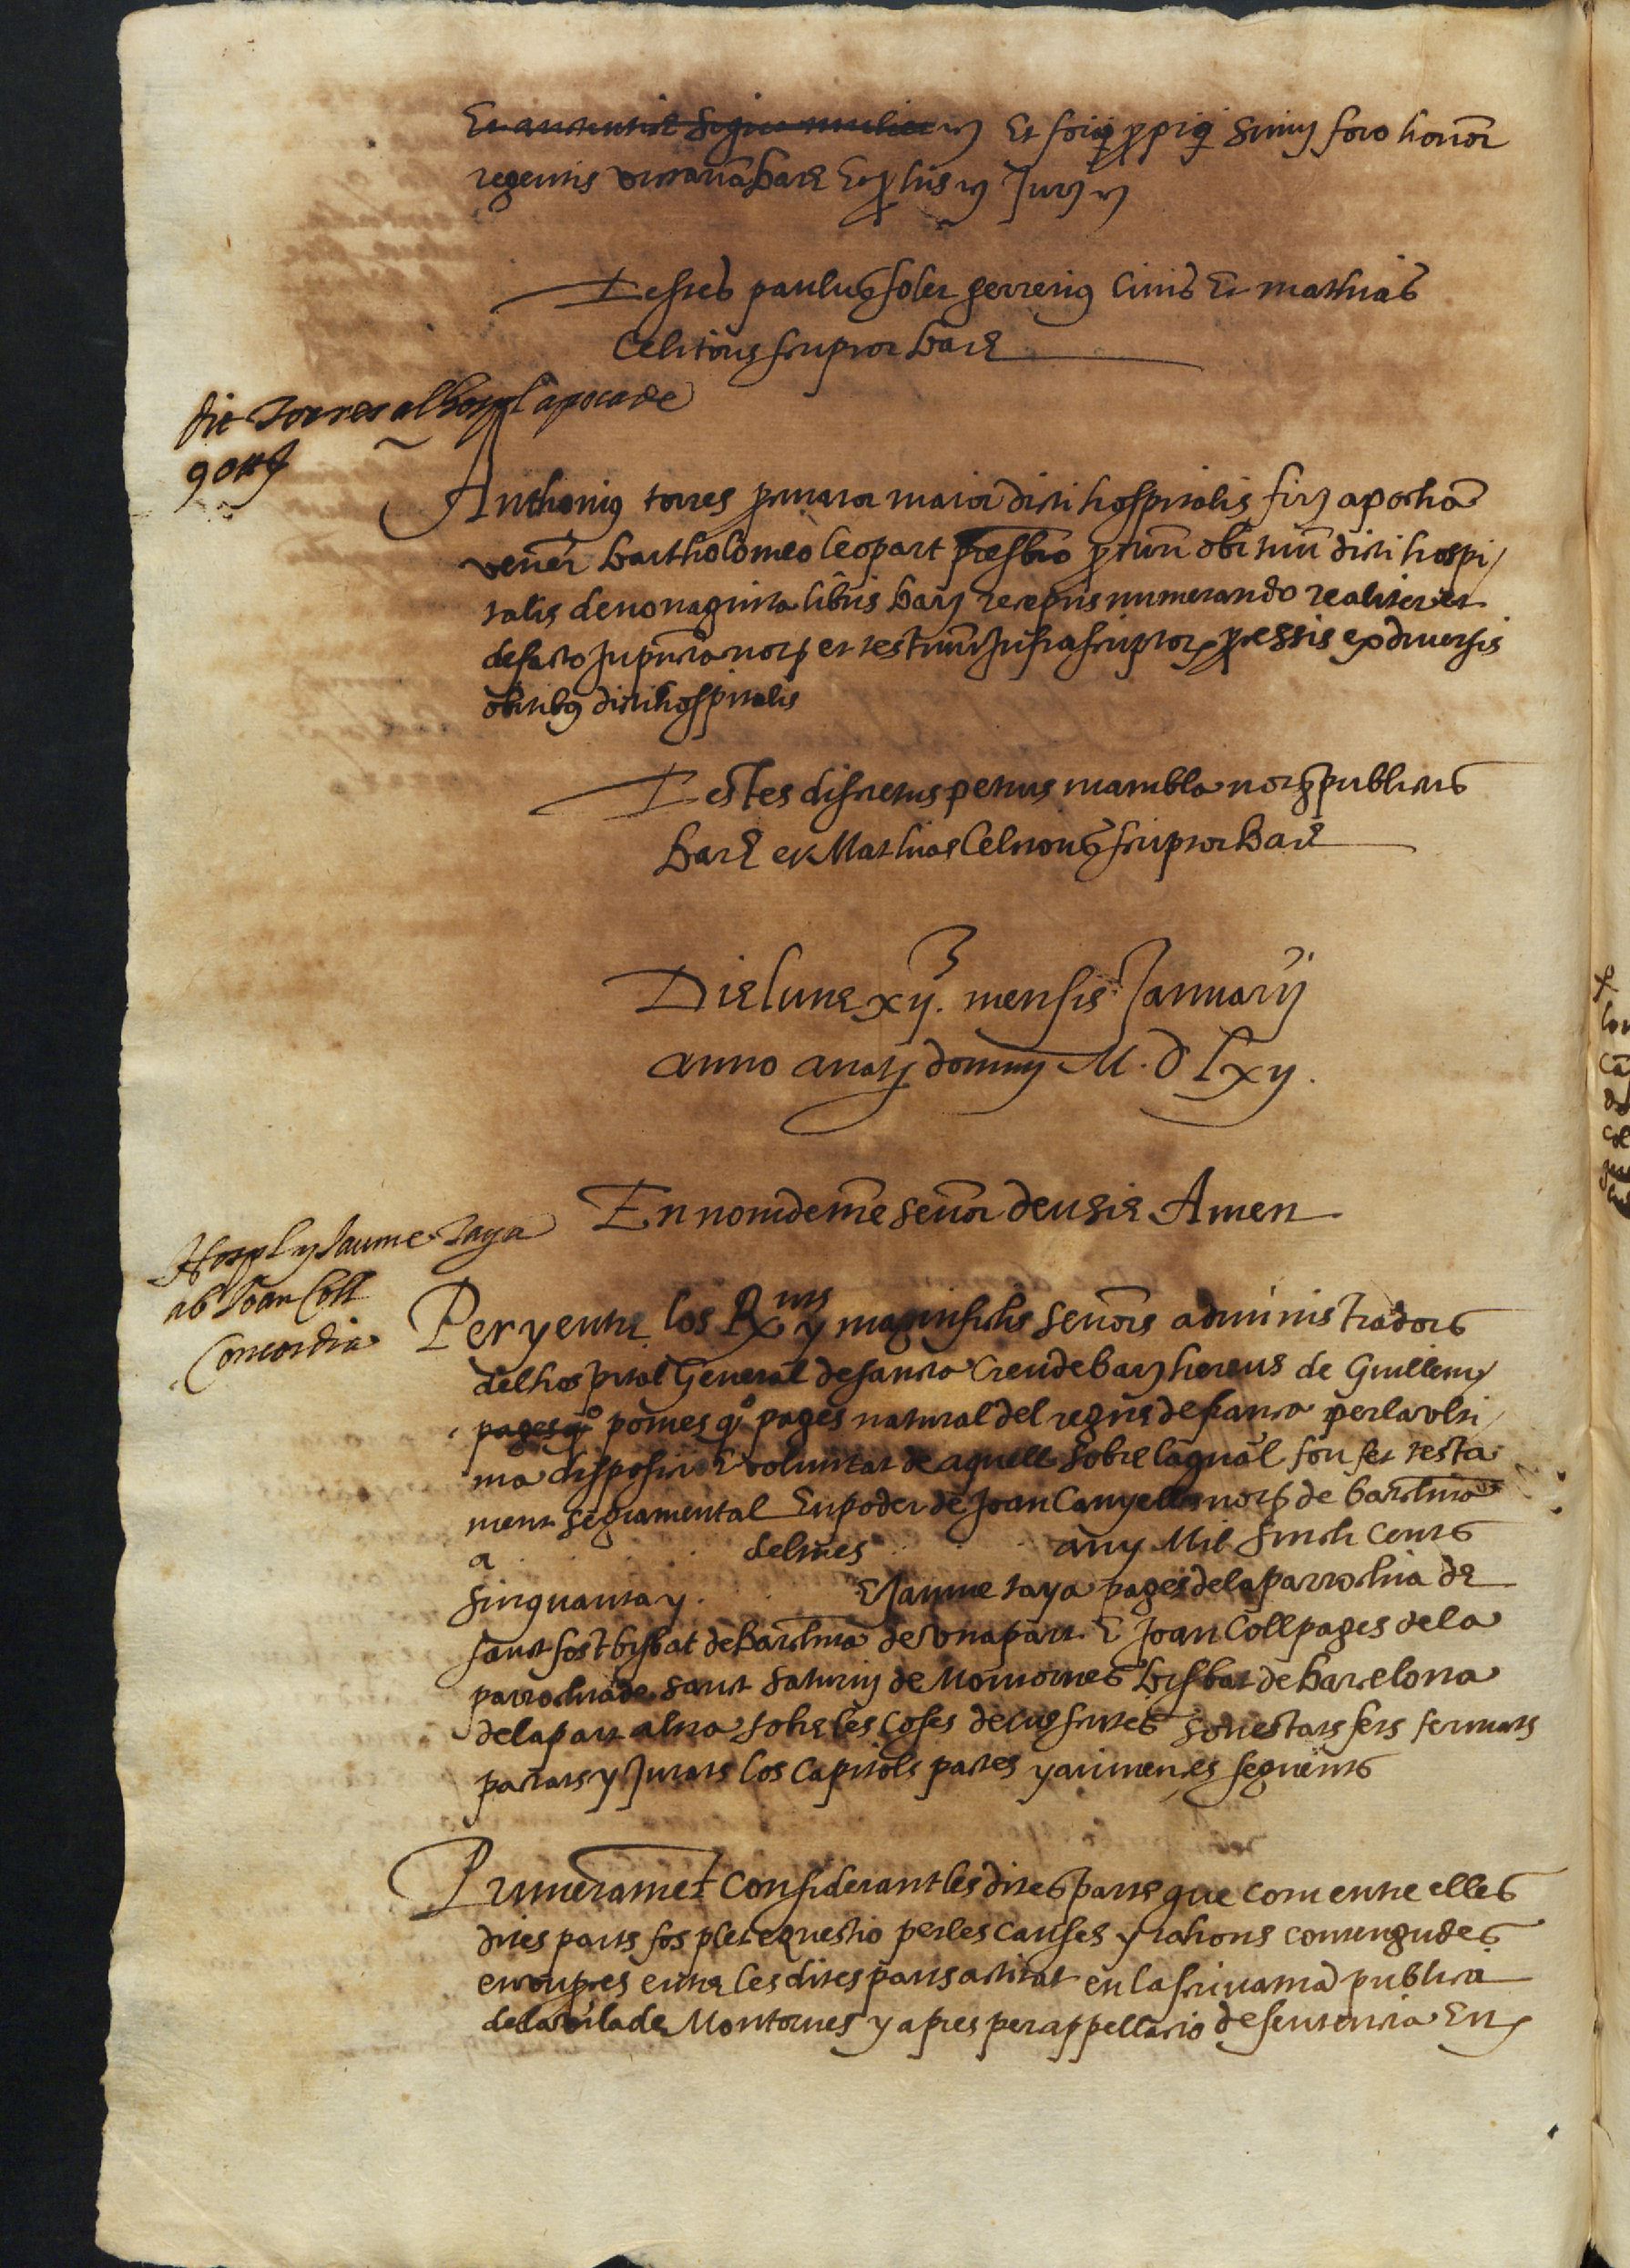 Et foriq ppriq summ foro honor
regentis vicariam barñ Et p his rẽ Jurẽ rẽ
Testes paulus soler ferrerius Civis Et mathias
Celitons scriptor barñ
dit Torres al hospl apoca de
90 ll
Anthonius torres prior maior dicti hospitalis firẽ apocham
vener bartholomeo leopart presbro dicti hospi
talis de nonaginta libris barẽ receptis numerando realiter et
de facto In pntia notẽ et testium Infrascriptorẽ pcessis ex diversis
obitibus dicti hospitalis
Testes discretus petrus mambla notẽ publicus
barñ et Mathias Celitons scriptor barñ
Die lune xij. mensis Januarij
anno a natẽ domini M. d lxij.
En nom de nre señor deu sia Amen
Hospl y Jaume Taya
ab Joan Coll
Concordia
Per y entre los Rx.ms y magnifichs señors administradors
del hospital General de santa Creu de barẽ hereus de Guillem
pages qº pomes qº pages natural del regne de fransa per la ulti
ma disposicio E voluntat de aquell sobre laqual fou fet testa
ment sagramental En poder de Joan Canyelles notẽ de barchna
a del mes any Mil Sinch Cents
Sinquanta y. E Jaume taya pages de la parrochia de
sant fost bisbat de Barchna de una part E Joan Coll pages de la
parrochia de sant saturni de Montornes bisbat de barcelona
de la part altra sobre les coses devus scrites son estats fets fermats
pactats y Jurats los Capitols pactes y avinenses seguents
Primerament Considerant les dites parts que com entre elles
dites parts fos plet e questio per les causes y rahons contengudes
en lo pces entre les dites parts actitat en la scrivania publica
de la vila de Montornes y apres per appellacio de sentencia En